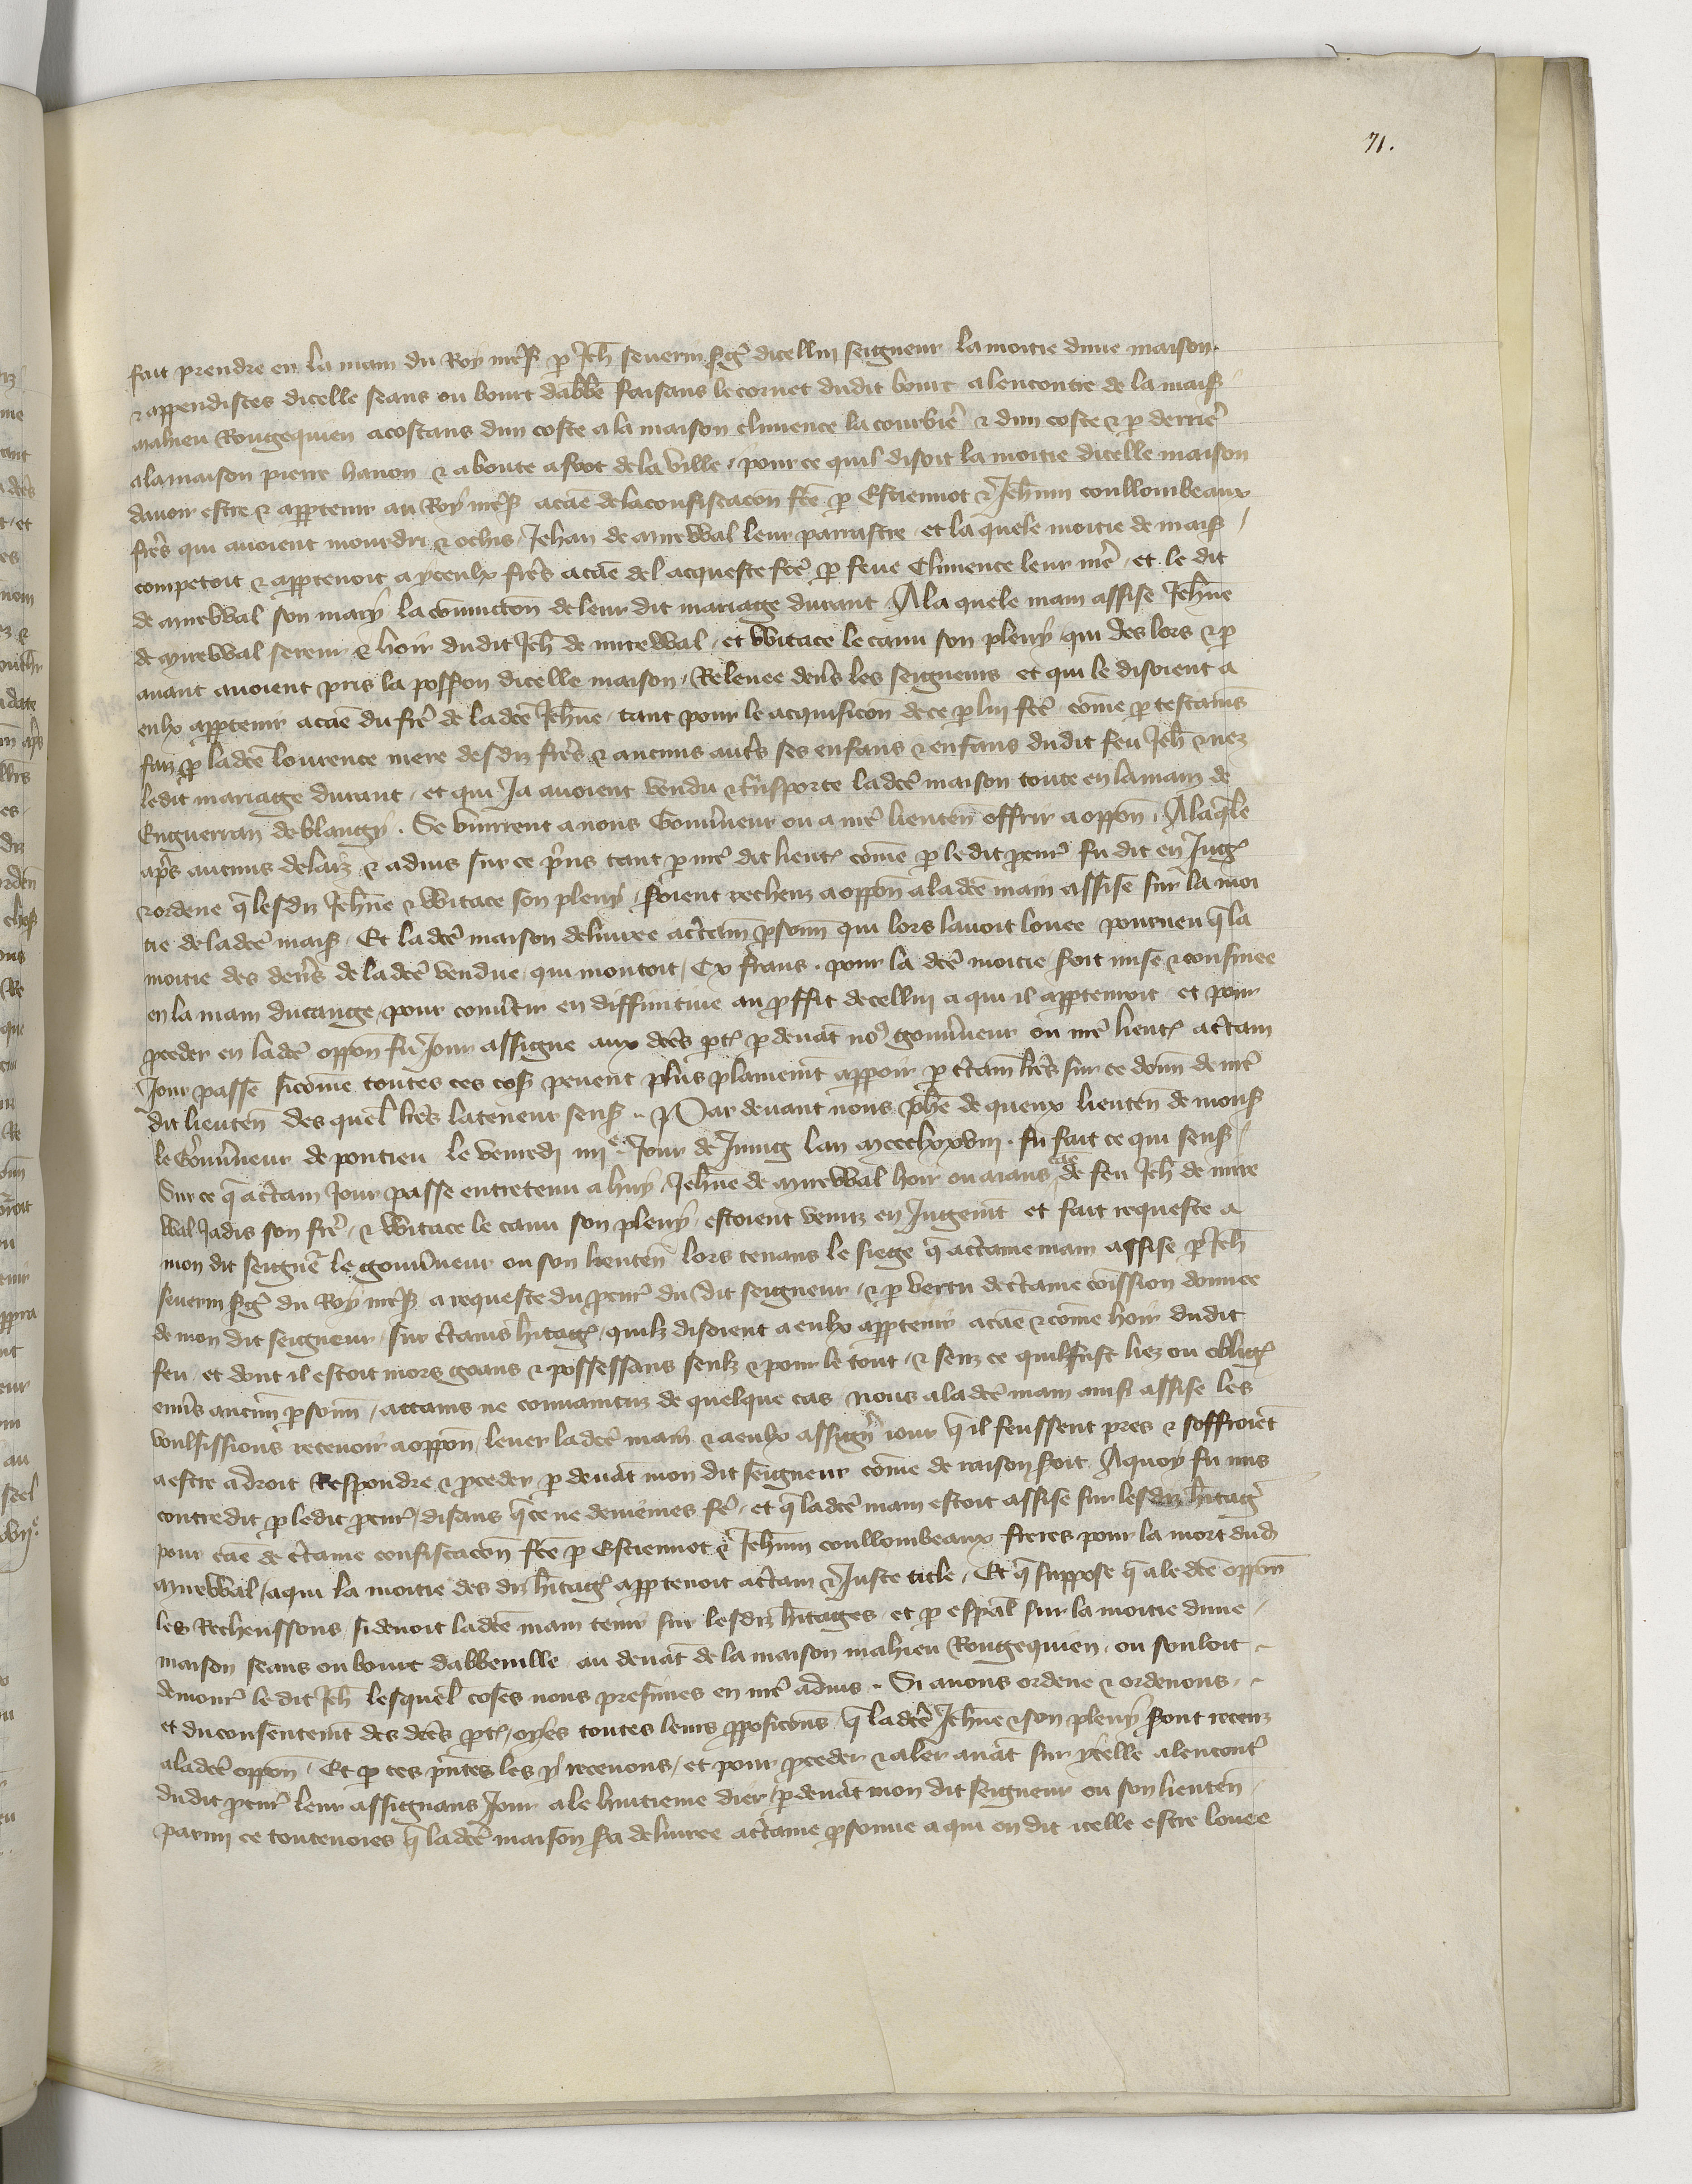 71.
fait prendre en la main du Roy nrēs᷒ p Jeh̄ seuerin s̄gᷤ dicellui seigneur la moitie dune maison.
& appendisces dicelle seans ou bourc dabbē faisans le cornet dudit bourc alencontre de la mais᷒
mahieu Rougequien acostans dun coste a la maison climence la courbiē & dun coste & p derriē
ala maison pierre hanon & aboute a froc de la ville / pour ce quil disoit la moitie dicelle maison
deuoir estre & appartenir au Roy nrēs᷒ a cāe de la confiscacōn fcē p Estiennot & Jehānin coullombeaux
frēs qui auoient mourdri & ochis Jehan de mirewal leur parrastre et la quele moitie de mais᷒ /
competoit & apptenoit a yceulx frēs a cāe del acqueste fcē p feue Climence leur mē / et le dit
de mirewal son mary la cōiuncton de leur dit mariage durant A la quele main assise Jehn̄e
de mirewal sereur & hoir dudit Jeh̄ de mirewal / et Witace le canu son pleuy qui des lors & p
auant auoient pris la possōn dicelle maison / Releuee deu͛s les seigneurs et qui le disoient a
eulx apptenir a cāe du frē de ladcē Jehn̄e / tant pour le acquisicōn de ce p lui fcē cōme p testamēs
faiz p ladcē lourence mere desdiz frēs & aucuns autr͛s ses enfans & enfans dudit feu Jeh̄ & nez
ledit mariage durant / et qui Ja auoient vendu & t͛nsporte ladcē maison toute en la main de
Enguerran de blangy . Se vinrrent a nous Gouu͛neur ou a nrē lieutēn offrir a oppōn . A laq̄le
apr͛s aucuns delaiz & aduis sur ce pr̄ns tant p nrē dit lieutᷤ cōme p le dit pcurᷤ fu dit en Jugᷤ
& ordene q̄ lesdiz Jehn̄e & Witace son pleuy / s͛oient recheuz a oppōn a la dcē main assise sur la moi
tie de la dcē mais᷒ / Et la dcē maison deliuree a ct͛ain p̄sonn̄ qui lors lauoit louee pourueu q̄ la
moitie des den͛s de la dcē vendue / qui montoit / Cx frans . pour la dcē moitie / soit mise & consinee
en la main du cange / pour conu͛tir en diffinitiue au pffit de cellui a qui il apptenroit et pour
pceder en ladcē oppōn fu Jour assigne aux dcēs ptᷤ p deuāt no9 gouu͛neur ou nrē lieutᷤ a ct͛ain
Jour passe sicōme toutes ces cos᷒ peuent pl9s plainemt̄ apparoir p ct͛ain lrēs sur ce donn̄ de nrē
dit lieutēn des quel̄ lrēs la teneur sens᷒ .. Par deuant nous ph̄e de queux lieutēn de mons᷒
le Gouu͛neur de pontieu le venredi iiijᵉ Jour de Juing lan mccclxxviij . fu fait ce qui sens᷒ /
Sur ce q̄ a ct͛ain Jour passe entretenu a huy / Jehn̄e de mirewal hoir ou aians cāe de feu Jeh̄ de mire
wal Jadis son frē / & Witace le canu son pleuy / estoient venuz en Jugemt̄ et fait requeste a
mon dit seignē le gouu͛neur ou son lieutēn lors tenans le siege q̄ a ct͛aine main assise p Jeh̄
seuerin s̄gᷤ du Roy nrēs᷒ a requeste du pcurᷤ du dit seigneur / & p vertu de ct͛aine cōission donnee
de mon dit seigneur / sur ct͛ains hītagᷤ / quilz disoient a eulx apptenir a cāe & cōme hoir dudit
feu / et dont il estoit mors goans & possessans seulz & pour le tout / & senz ce quil fust liez ou obligᷤ
enu͛s aucun p̄sonn̄ / attains ne conuaincuz de quelque cas nous a la dcē main ainsi assise les
voulsissions receuoir a oppōn / leuer ladcē main & a eulx assign͛ iour q̄ il feussent pres & soffroiēt
a estre a droit Respondre & pceder p deuāt mon dit seigneur cōme de raison s͛oit A quoy fu mis
contredit p ledit pcurᷤ / disans q̄ ce ne deuiemes fē / et q̄ ladcē main estoit assise sur lesdiz hītagᷤ
pour cāe de ct͛aine confiscacōn fcē p Estiennot & Jehānin coullombeaux freres pour la mort dud
mirewal / a qui la moitie des diz hītagᷤ apptenoit a ct͛ain & Juste title . Et q̄ suppose q̄ a le dcē oppōn
les Recheussons / si deuoit ladcē main tenir sur lesdiz hītages / et p esp̄al sur la moitie dune /
maison seans ou bourc dabbeuille au deuāt de la maison mahieu Rougequien / ou souloit ~
demourᷤ le dit Jeh̄ lesquel̄ coses nous presimes en nrē aduis .. Si auons ordene & ordenons . ~
et du consentemt̄ des dcēs ptᷤ / oyes toutes leurs pposicōns q̄ ladcē Jehn̄e & son pleuy sont receuz
a ladcē oppōn . Et p ces pr̄ntes les y receuons / et pour pceder & aler auāt sur ycelle alencontᷤ
dudit pcurᷤ leur assignans Jour a le huitieme dier / p deuāt mon dit seigneur ou son lieutēn /
parmi ce toutenoies q̄ ladcē maison s͛a deliuree a ct͛aine p̄sonne a qui on dit icelle estre louee